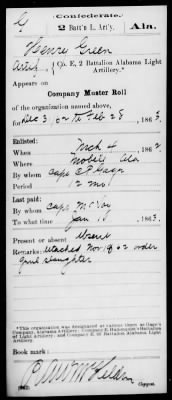 (Confederate.)
G 2 Batt'n L. Art'y. Ala.
Henry Green
Artif, Co. E, 2 Battalion Alabama Light Artillery.*
Appears on
Company Muster Roll
of the organization named above,
for Dec 31/62 to Feb 28, 1863
Enlisted:
When Mch 4, 1862
Where Mobile Ala
By whom Capt C P Gage
Period 12 mo
Last paid:
By whom Capt McVoy
To what time Jan 1, 1863.
Present or absent Absent
Remarks: Detached Nov 19 62 order
Genl Slaughter
*This organization was designated at various times as Gage's
Company, Alabama Artillery; Company E, Hallonquist's Battalion
Alabama Light Artillery; and Company E, 2d Battalion Alabama Light
Artillery.
Book mark:
Copyist.